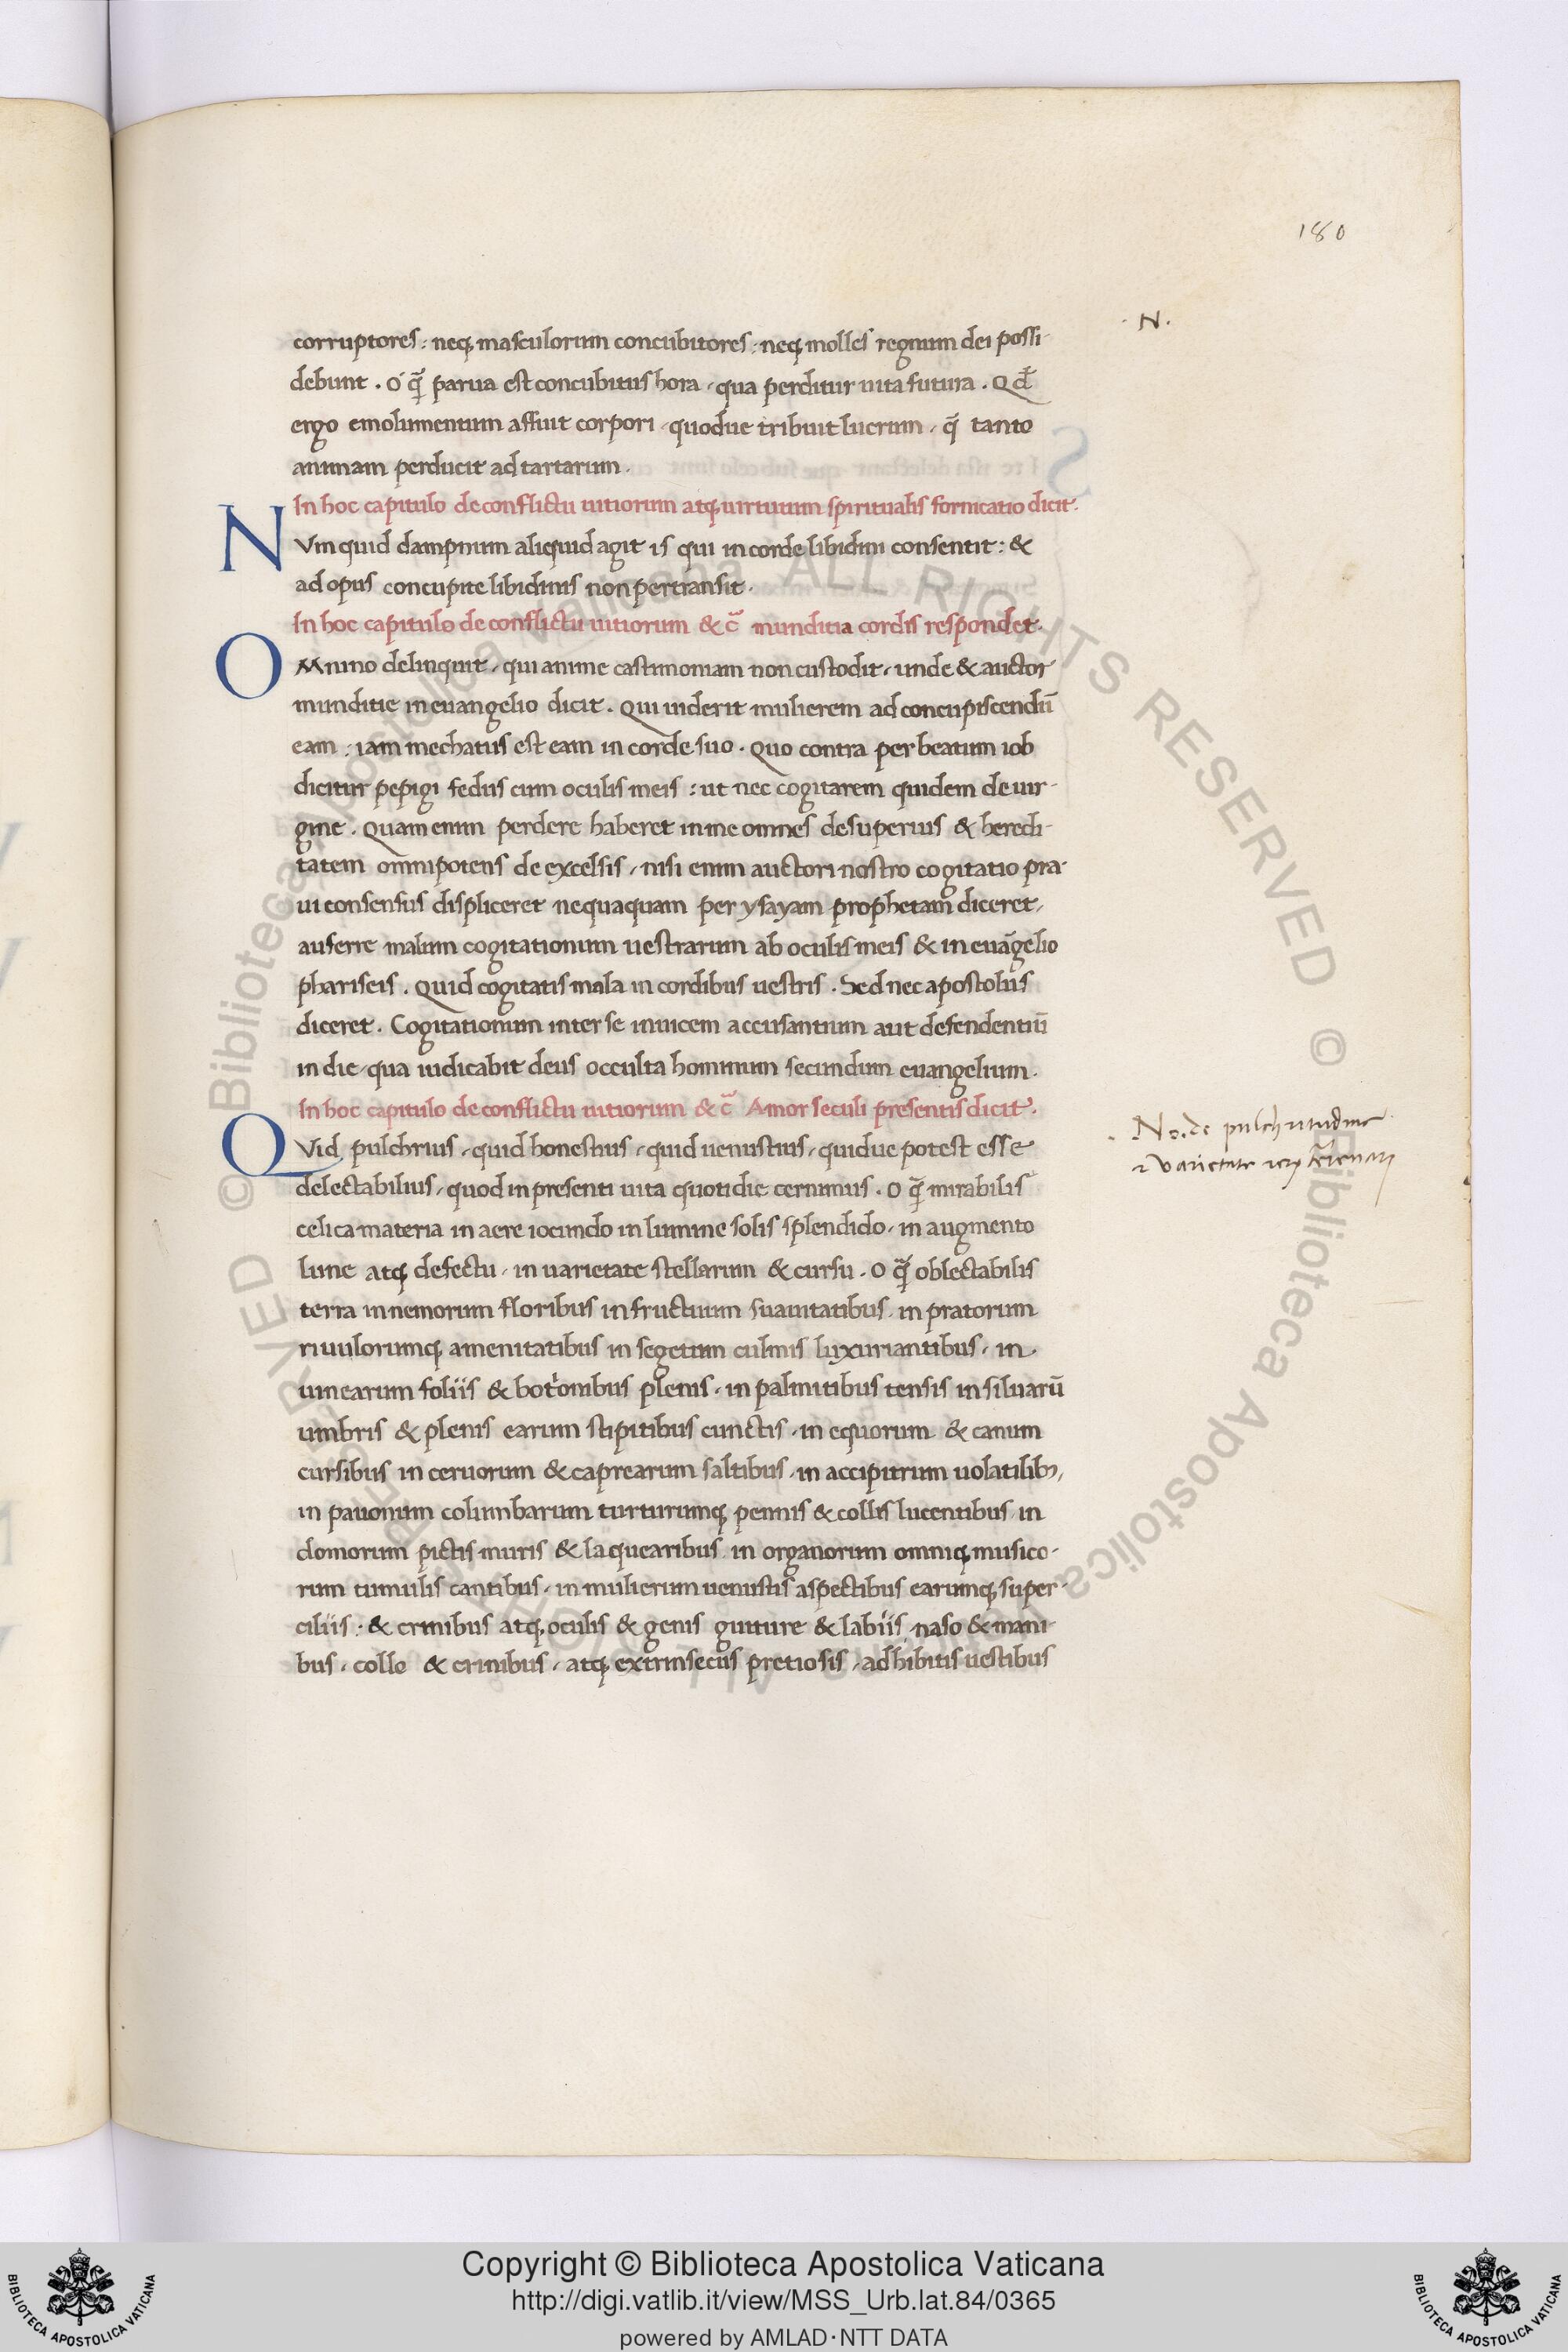 180
· N ·
corruptores : neq masculorum concubitores : neq molles regnum dei possi-
debunt . O q̃ parua est concubitus hora , qua perditur uita futura . Qđ
ergo emolumentum affuit corpori , quodue tribuit lucrum , q̃ tanto
animam perducit ad tartarum .
In hoc capitulo de conflictu uitiorum atq uirtutum spiritualis fornicatio dicit .
NVmquid dampnum aliquid agit is qui in corde libidini consentit : &
ad opus concupite libidinis non pertransit .
In hoc capitulo de conflictu uitiorum & c̃ munditia cordis respondet .
OMnino delinquit , qui anime castimoniam non custodit , unde & auctor
munditie in euangelio dicit . Qui uiderit mulierem ad concupiscendū
eam : iam mechatus est eam in corde suo . Quo contra per beatum iob
dicitur pepigi fedus cum oculis meis : ut nec cogitarem quidem de uir-
gine . Quam enim perdere haberet in me omnes desuperius & heredi-
tatem omnipotens de excelsis , nisi enim auctori nostro cogitatio pra-
ui consensus displiceret nequaquam per ysayam prophetam diceret ,
auferre malum cogitationum uestrarum ab oculis meis & in euāgelio
phariseis . Quid cogitatis mala in cordibus uestris . Sed nec apostolus
diceret . Cogitationum inter se inuicem accusantium aut defendentiū
in die , qua iudicabit deus occulta hominum secundum euangelium .
In hoc capitulo de conflictu uitiorum & c̃ Amor seculi presentis dicit .
QVid pulchrius , quid honestius , quid uenustius , quidue potest esse
delectabilius , quod in presenti uita quotidie cernimus . O q̃ mirabilis
celica materia in aere iocundo in lumine solis splendido , in augmento
lune atq defectu , in uarietate stellarum & cursu . O q̃ oblectabilis
terra in nemorum floribus in fructuum suauitatibus , in pratorum
riuulorumq amenitatibus in segetum culmis luxuriantibus , in
uinearum foliis & botronibus plenis , in palmitibus tensis in siluarū
umbris & plenis earum stipitibus cunctis , in equorum & canum
cursibus in ceruorum & caprearum saltibus , in accipitrum uolatilib;,
in pauonum columbarum turturumq pennis & collis lucentibus , in
domorum pictis muris & laquearibus , in organorum omniq musico-
rum tumulis cantibus , in mulierum uenustis aspectibus earumq super-
ciliis : & crinibus atq oculis & genis gutture & labiis , naso & mani-
bus , collo & crinibus , atq extrinsecus pretiosis , adhibitis uestibus
· No. de pulchritudine
Copyright © Biblioteca Apostolica Vaticana
http://digi.vatlib.it/view/MSS_Urb.lat.84/0365
powered by AMLAD·NTT DATA
BIBLIOTECA APOSTOLICA VATICANA
BIBLIOTECA APOSTOLICA VATICANA